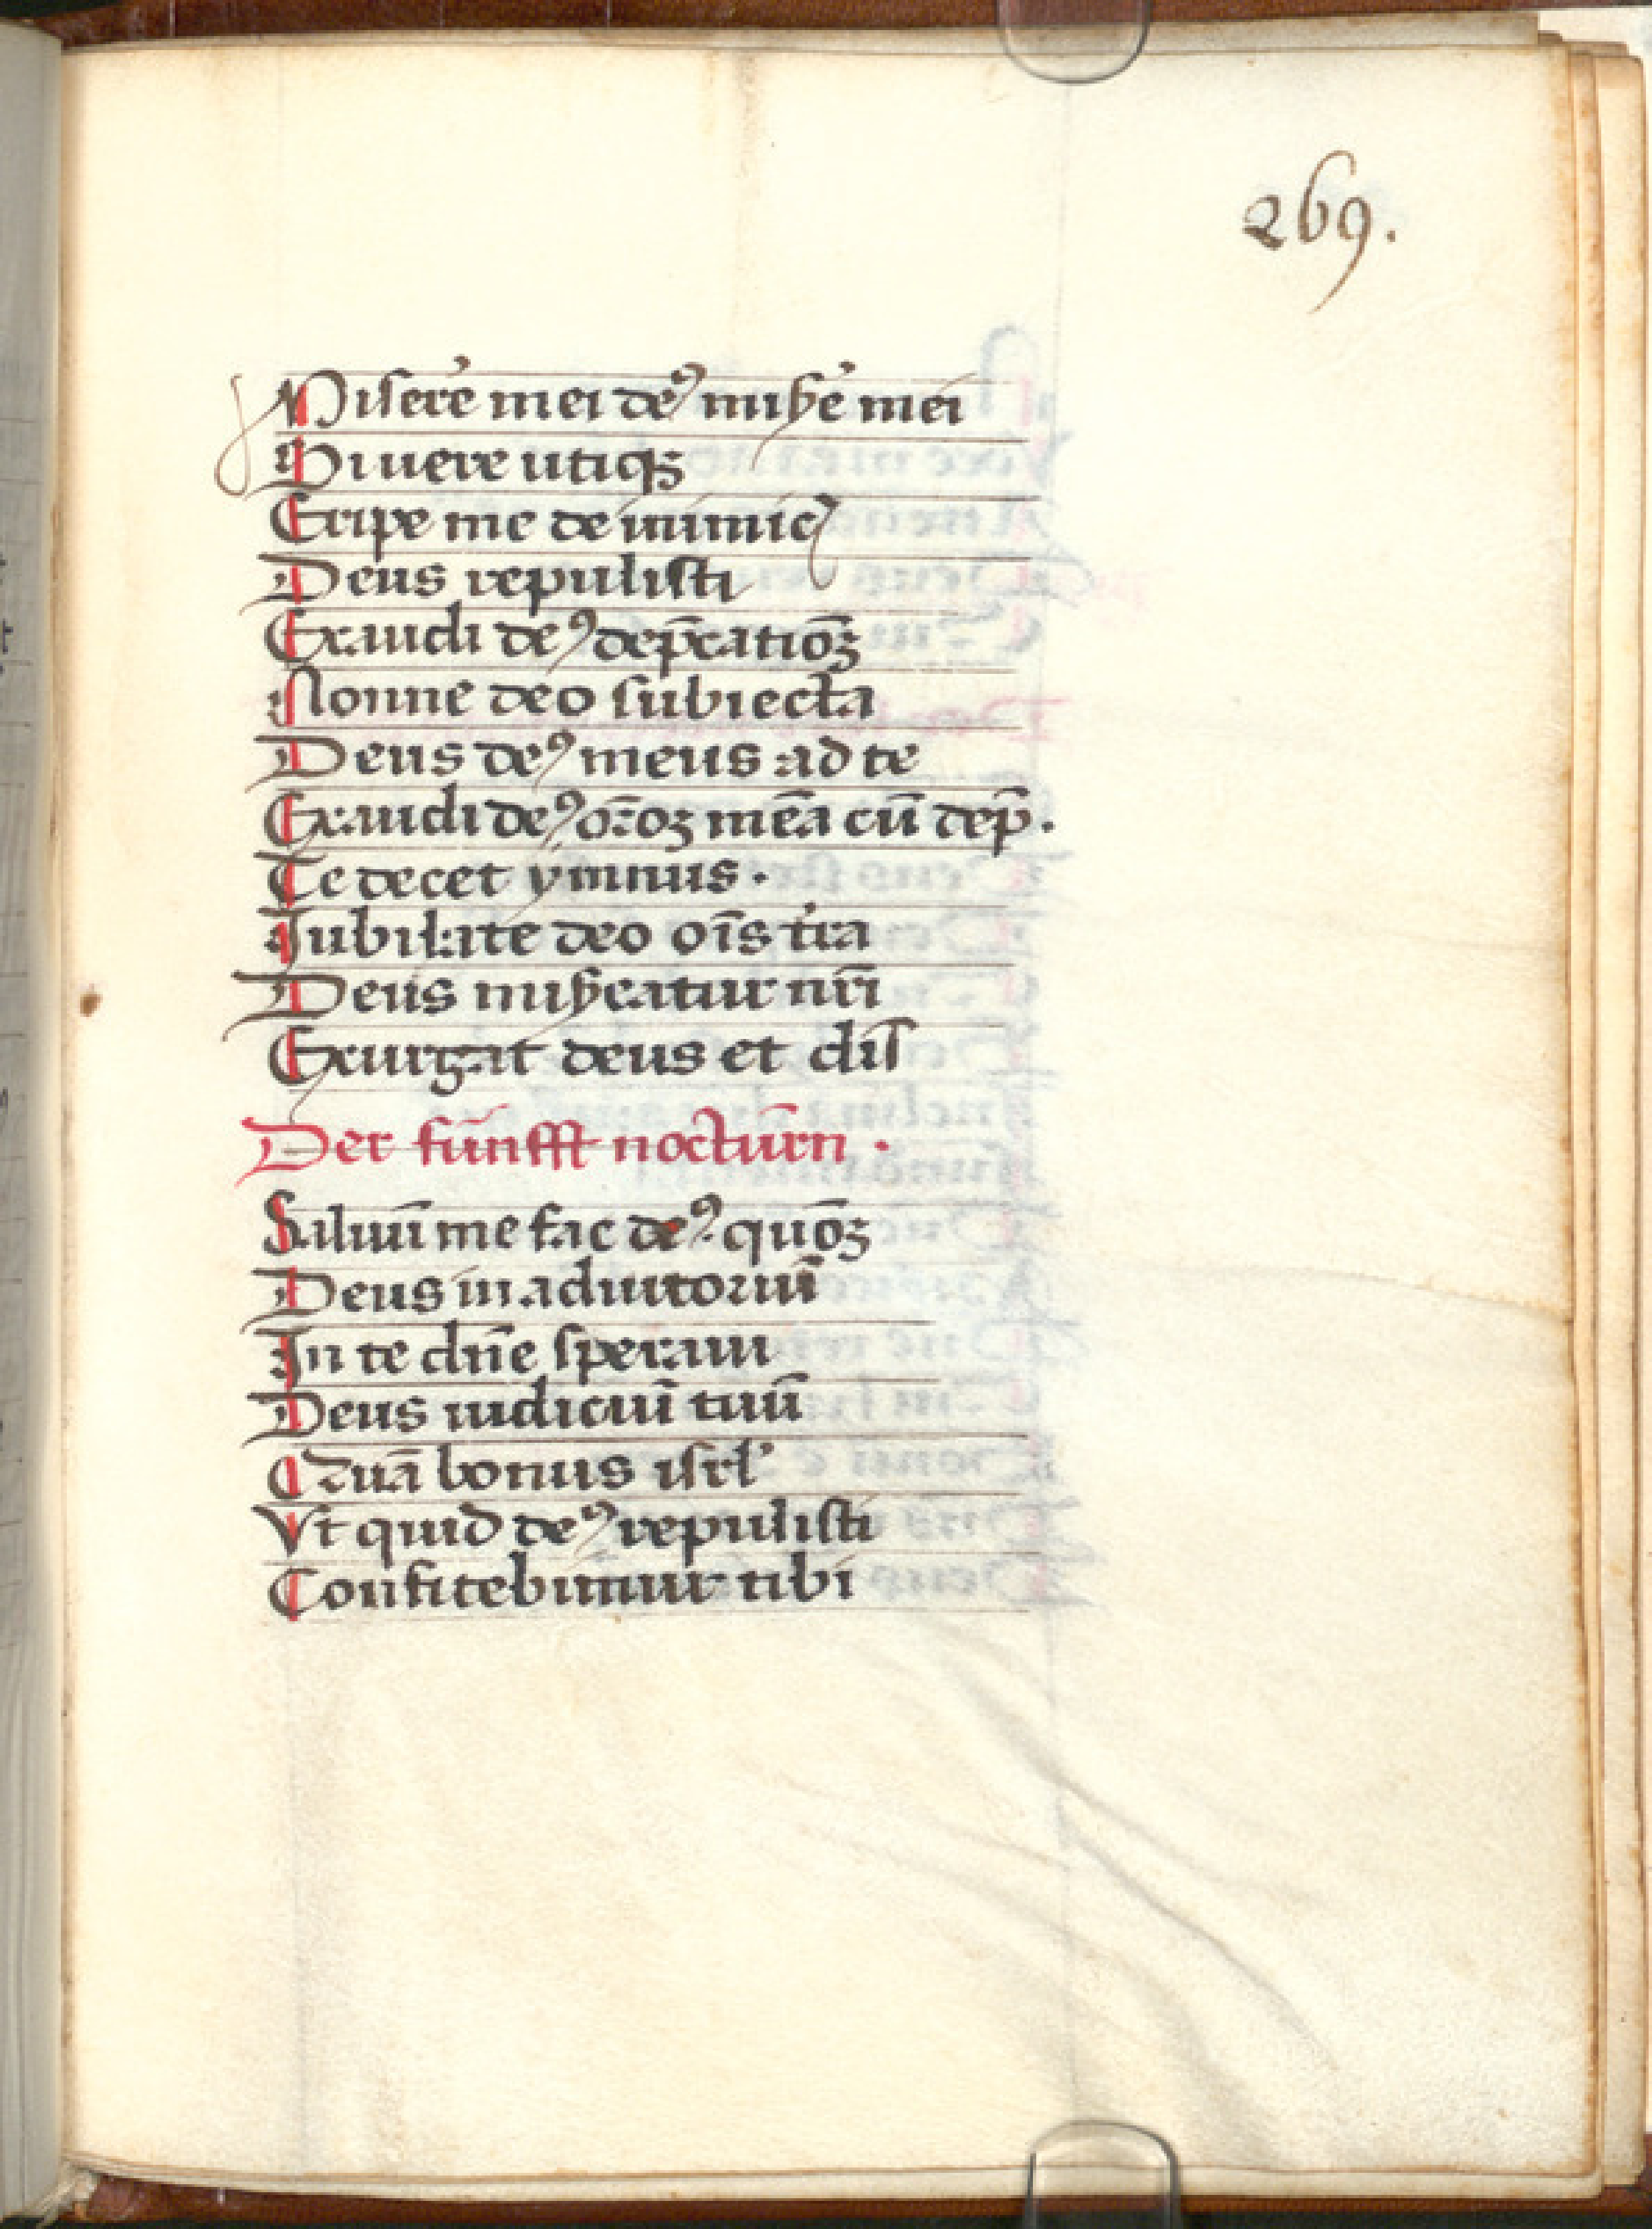 269.
Miserē mei deꝰ mißē mei
Si uere utiqꝫ
Eripe me de inimicꝭ
Deus repulisti
Exaudi deꝰ dep̄catiōꝫ
Nonne deo subiecta
Deus deꝰ meus ad te
Exaudi deꝰ or̄oꝫ mēa cū dep̄.
Te decet ymnus.
Jubilate deo oīs tr̄a
Deus mißeatur nr̄i
Exurgat deus et dis
Der funfft nocturn.
Saluū me fac deꝰ quōꝫ
Deus in adiutoriū
In te dn̄e speraui
Deus iudiciū tuū
Quā bonus isrl'
Vt quid deꝰ repulisti
Confitebimur tibi